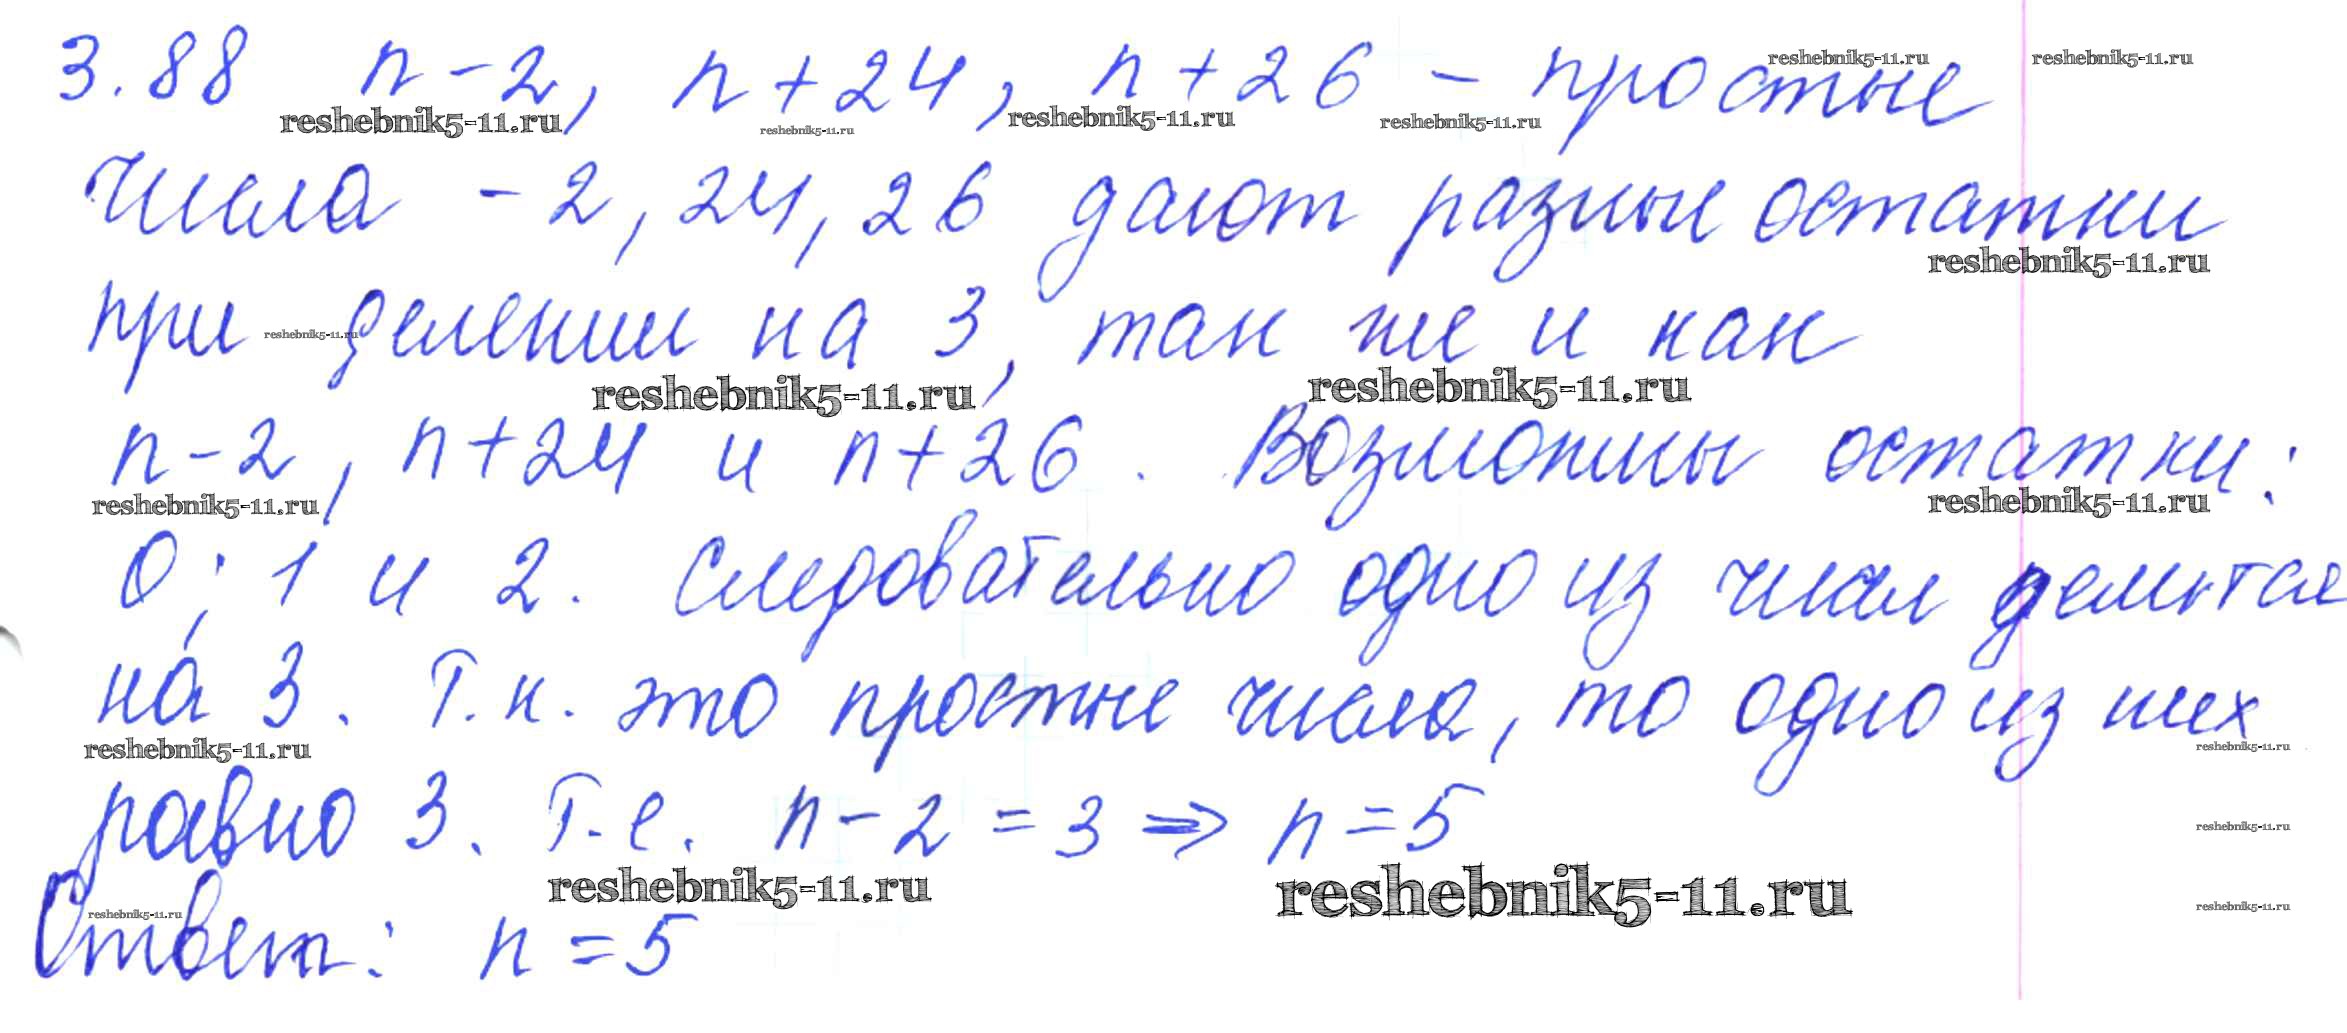 3.88 n-2, n+24, n+26 - простые
reshebnik5-11.ru reshebnik5-11.ru
reshebnik5-11.ru reshebnik5-11.ru reshebnik5-11.ru reshebnik5-11.ru
числа -2, 24, 26 дают разные остатки
reshebnik5-11.ru
при делении на 3, так же и как
reshebnik5-11.ru
reshebnik5-11.ru reshebnik5-11.ru
n-2, n+24 и n+26. Возможны остатки:
reshebnik5-11.ru reshebnik5-11.ru
0; 1 и 2. Следовательно одно из чисел делится
на 3. Т.к. это простые числа, то одно из них
reshebnik5-11.ru reshebnik5-11.ru
равно 3. Т.е. n-2=3 => n=5
reshebnik5-11.ru
reshebnik5-11.ru reshebnik5-11.ru
reshebnik5-11.ru reshebnik5-11.ru
Ответ: n=5